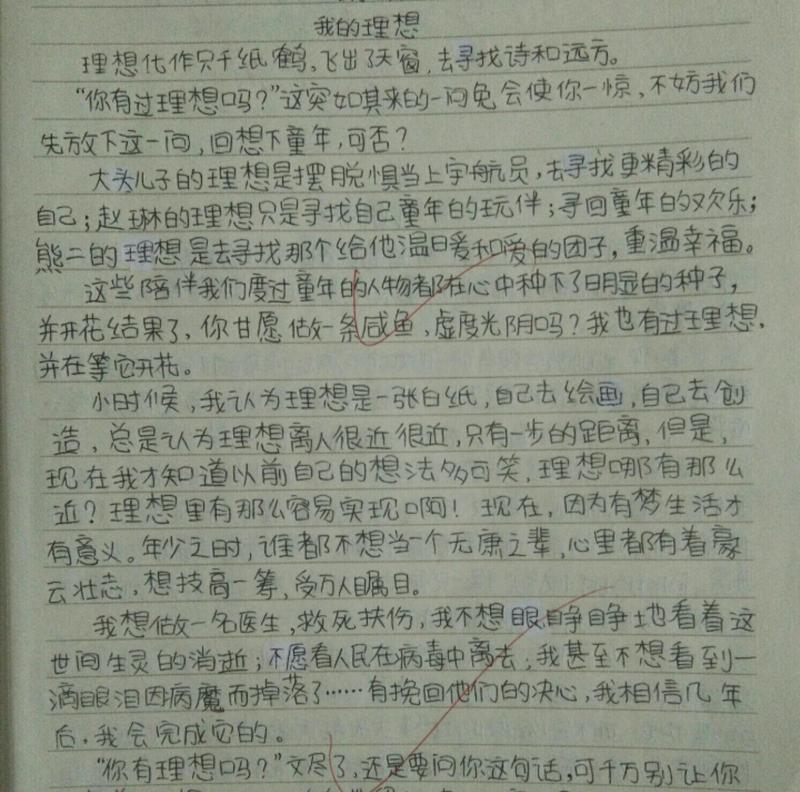 我的理想
理想化作只千纸鹤,飞出了天窗,去寻找诗和远方。
“你有过理想吗?”这突如其来的一问免会使你一惊,不妨我们
先放下这一问,回想下童年,可否?
大头儿子的理想是摆脱惧当上宇航员,去寻找更精彩的
自己;赵琳的理想只是寻找自己童年的玩伴;寻回童年的欢乐;
熊二的理想是去寻找那个给他温暖和爱的团子,重温幸福。
这些陪伴我们度过童年的人物都在心中种下了明显的种子,
并开花结果了,你甘愿做一条咸鱼,虚度光阴吗?我也有过理想,
并在等它开花。
小时候,我认为理想是一张白纸,自己去绘画,自己去创
造,总是认为理想离人很近很近,只有一步的距离,但是,
现在我才知道以前自己的想法多可笑,理想哪有那么
近?理想里有那么容易实现啊!现在,因为有梦生活才
有意义。年少之时,谁都不想当一个无庸之辈,心里都有着豪
云壮志,想技高一筹,受万人瞩目。
我想做一名医生,救死扶伤,我不想眼睁睁地看着这
世间生灵的消逝;不愿看人民在病毒中离去;我甚至不想看到一
滴眼泪因病魔而掉落了……有挽回他们的决心,我相信几年
后,我会完成它的。
“你有理想吗?”文尽了,还是要问你这句话,可千万别让你